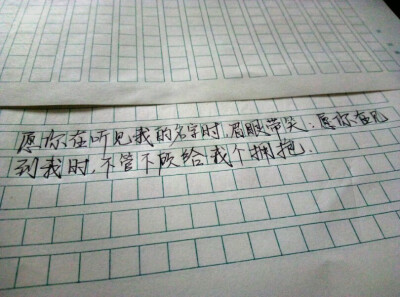 愿你在听见我的名字时,眉眼带笑;愿你在见
到我时,不管不顾给我个拥抱.